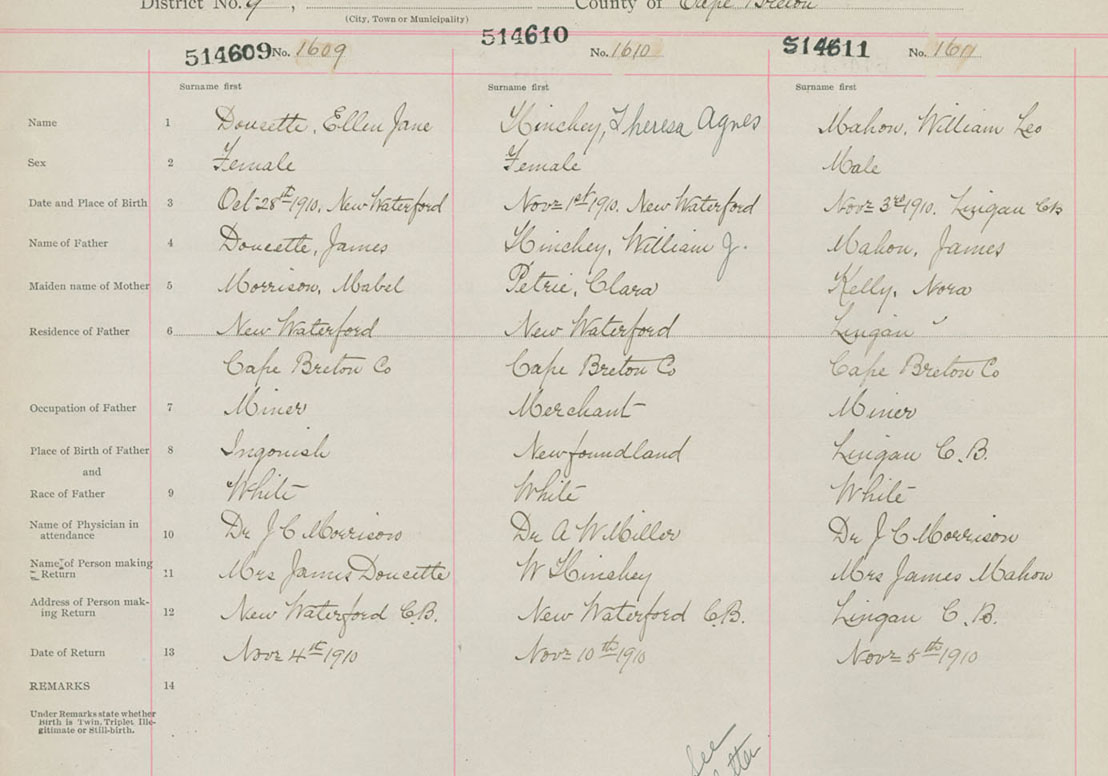 District No. 9, County of Cape Breton
(City, Town or Municipality)
514609 No. 1609 514610 No. 1610 514611 No. 1611
Surname first Surname first Surname first
Name 1 Doucette, Ellen Jane Hinchey, Theresa Agnes Mahon, William Leo
Sex 2 Female Female Male
Date and Place of Birth 3 Oct 28th 1910, New Waterford Nov 1st 1910. New Waterford Nov 3rd 1910. Lingan CB
Name of Father 4 Doucette, James Hinchey, William J. Mahon, James
Maiden name of Mother 5 Morrison, Mabel Petrie, Clara Kelly, Nora
Residence of Father 6 New Waterford New Waterford Lingan
Cape Breton Co Cape Breton Co Cape Breton Co
Occupation of Father 7 Miner Merchant Miner
Place of Birth of Father 8 Ingonish Newfoundland Lingan C.B.
and
Race of Father 9 White White White
Name of Physician in
attendance 10 Dr J C Morrison Dr A W Miller Dr J C Morrison
Name of Person making
Return 11 Mrs James Doucette W Hinchey Mrs James Mahon
Address of Person mak-
ing Return 12 New Waterford C.B. New Waterford C.B. Lingan C.B.
Date of Return 13 Nov 4th 1910 Nov 10th 1910 Nov 5th 1910
REMARKS 14
Under Remarks state whether
Birth is Twin, Triplet, Ille-
gitimate or Still-birth.
See